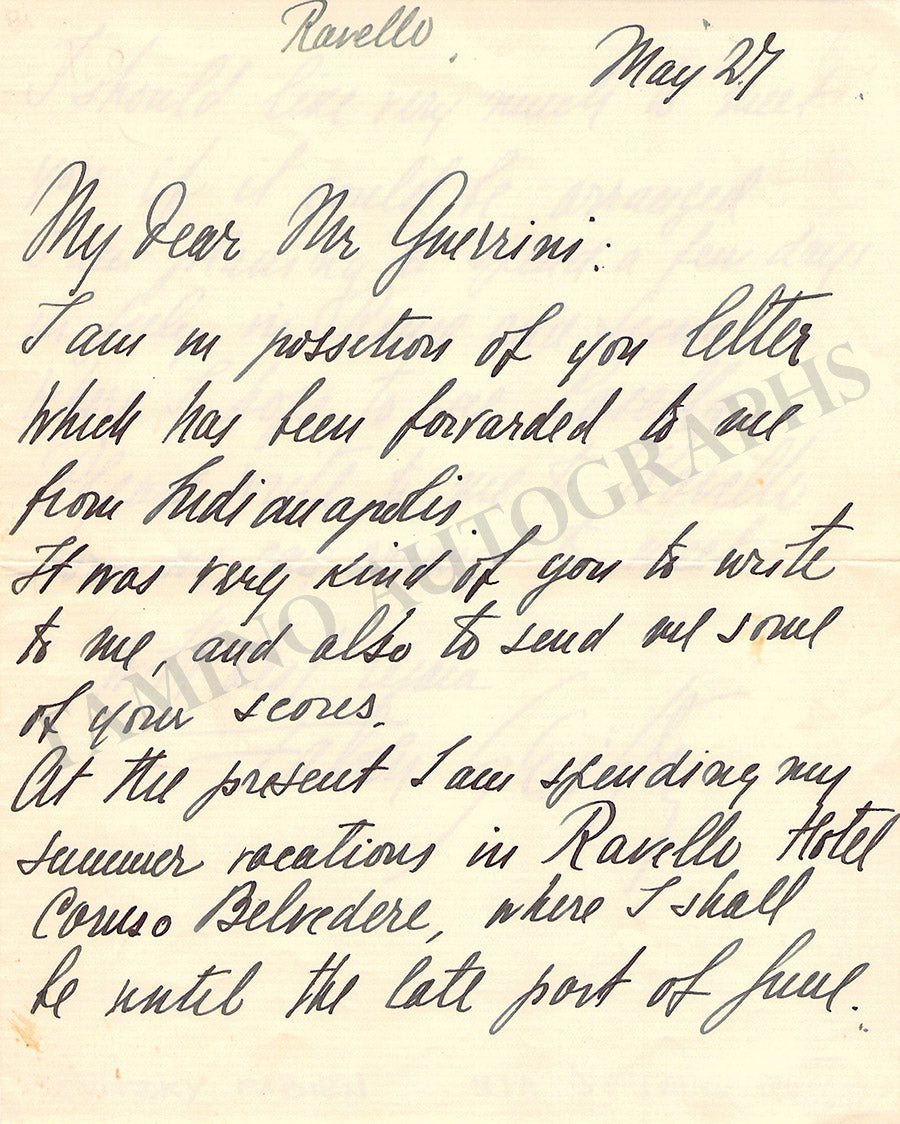 Ravello
May 27
My Dear Mr Guerrini:
I am in possetion of you letter
which has been forwarded to me
from Indianapolis
It was very kind of you to write
to me, and also to send me some
of your scores.
At the present I am spending my
summer vacations in Ravello Hotel
Caruso Belvedere, where I shall
be until the late part of June.
TAMINO AUTOGRAPHS